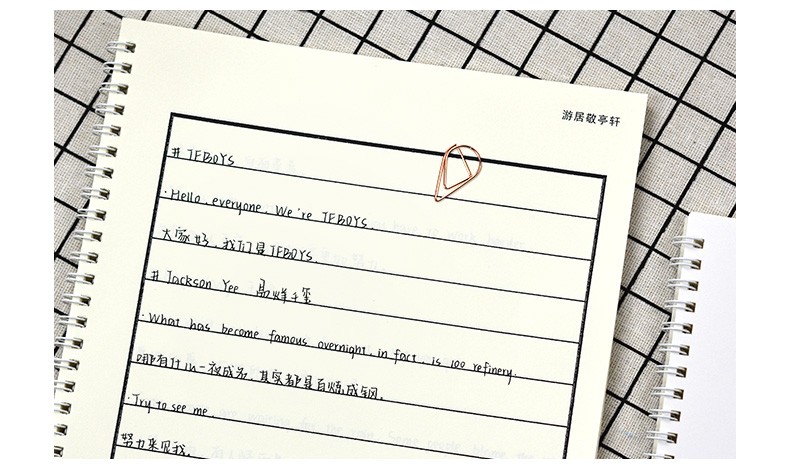 游居敬亭轩
# TFBOYS
· Hello, everyone, We're TFBOYS.
大家好，我们是TFBOYS.
# Jackson Yee 易烊千玺
· What has become famous overnight, in fact, is 100 refinery.
哪有什么一夜成名，其实都是百炼成钢.
· Try to see me.
努力来见我.